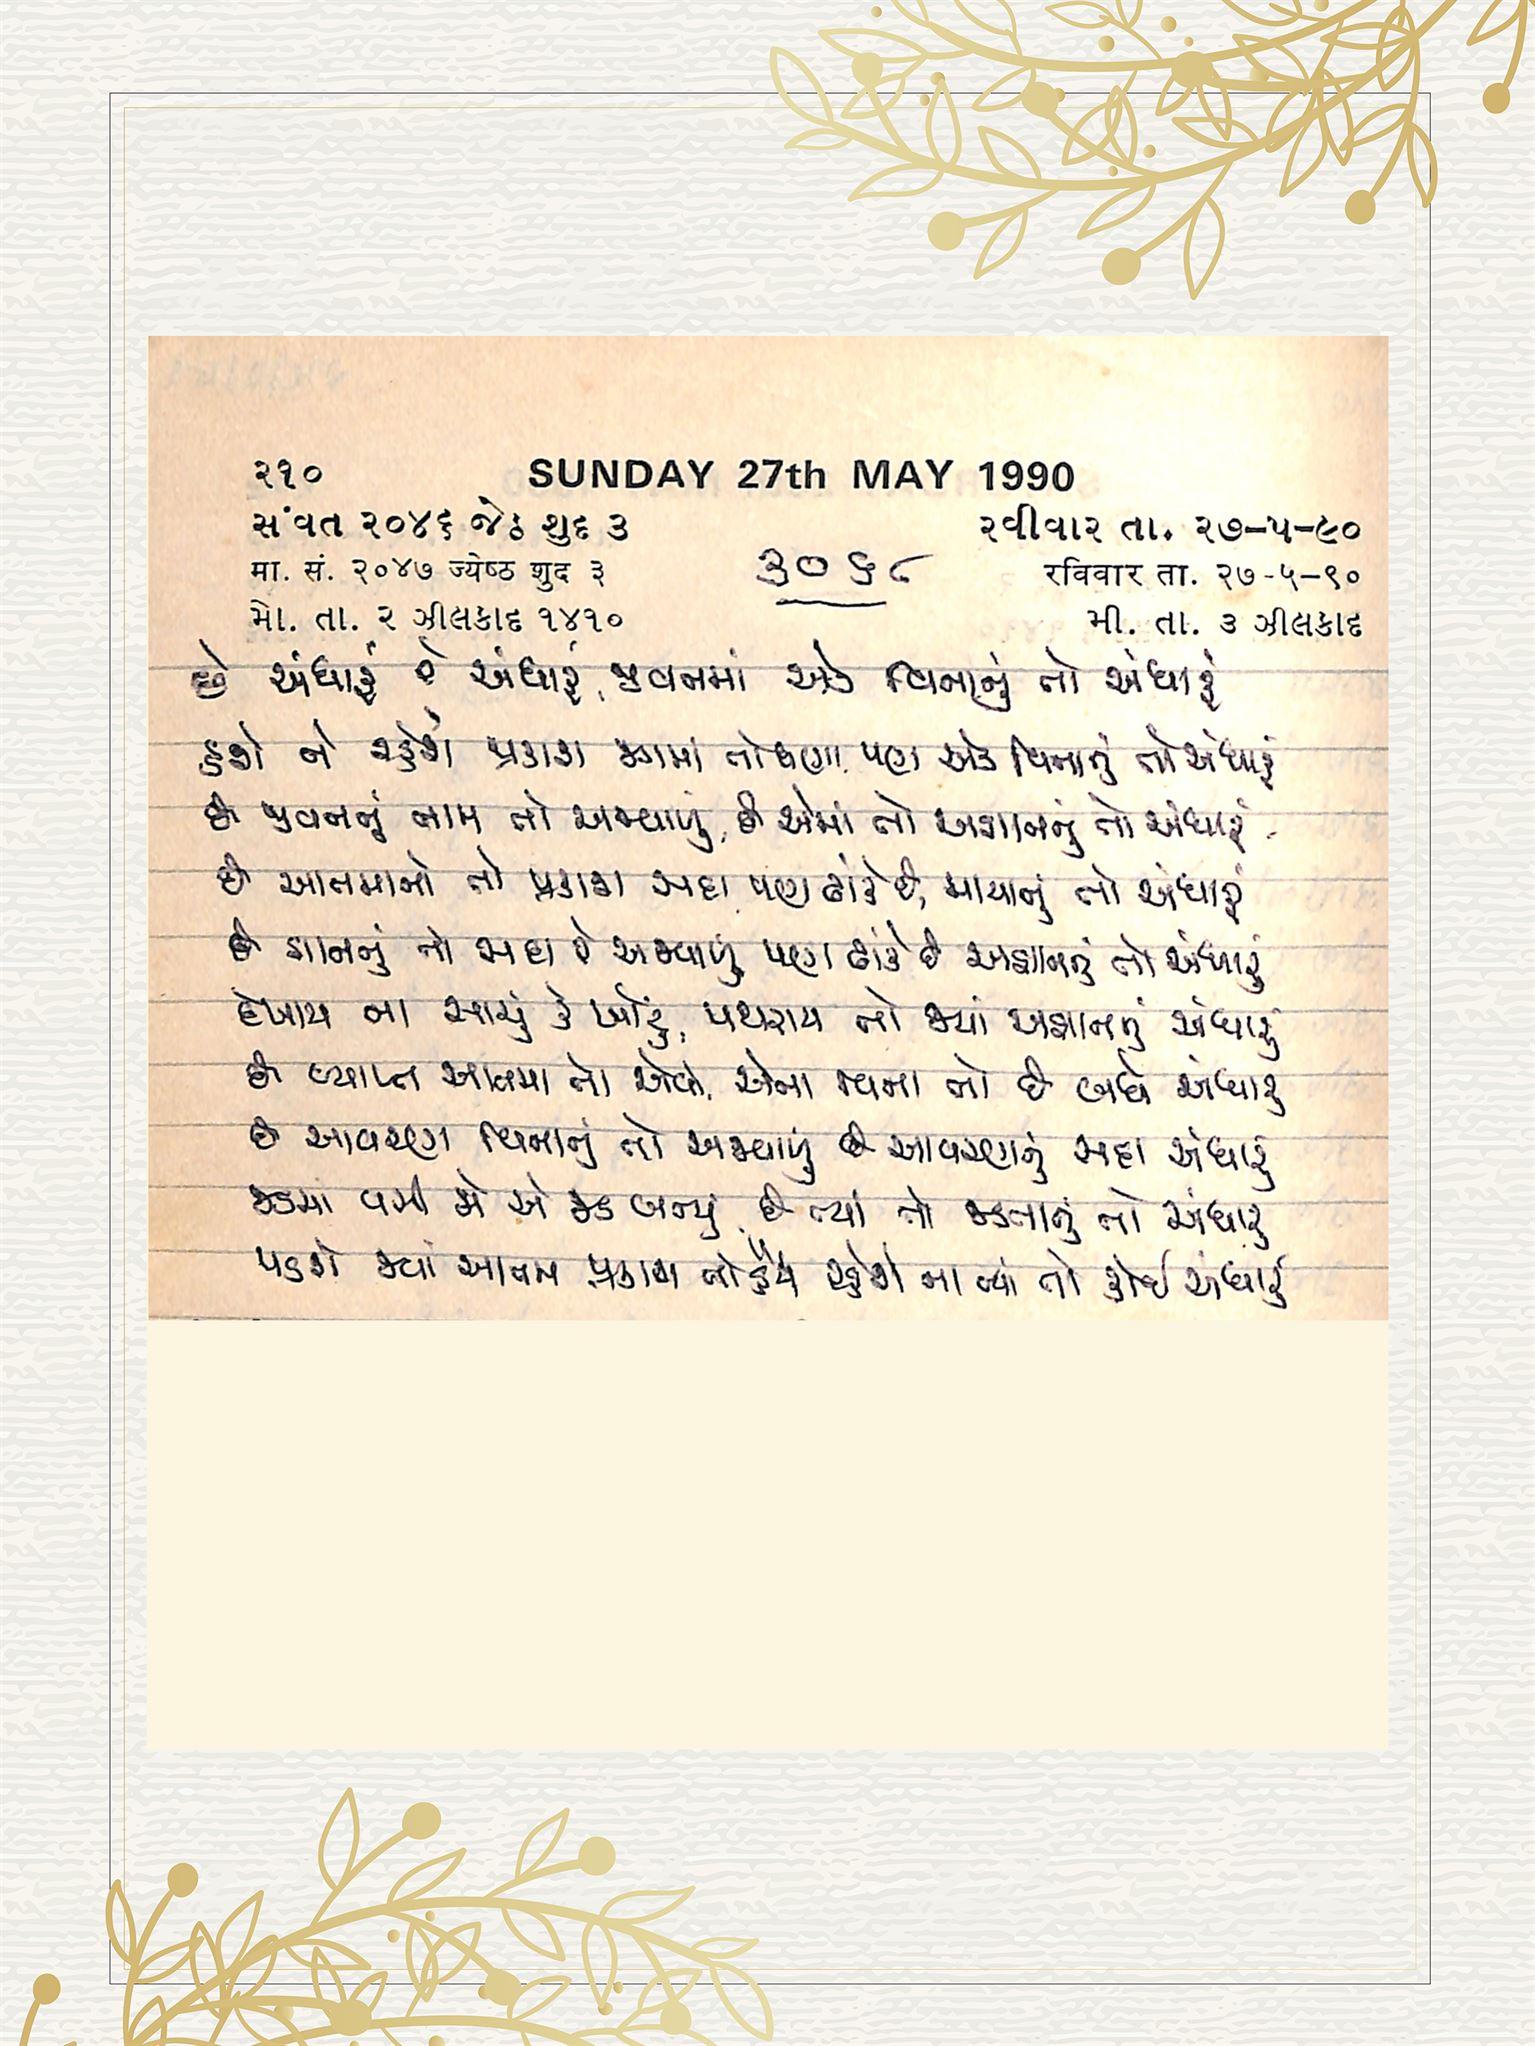 ૨૧૦ SUNDAY 27th MAY 1990
સંવત ૨૦૪૬ જેઠ શુદ ૩ રવીવાર તા. ૨૭-૫-૯૦
मा. सं. २०४७ ज्येष्ठ शुद ३ रविवार ता. २७-५-९०
મો. તા. ૨ ઝીલકાદ ૧૪૧૦ મી. તા. ૩ ઝીલકાદ
૩૦૬૮
છે અંધારું રે અંધારું, જીવનમાં એક વિનાનું તો અંધારું
હશે ને રહેશે પ્રકાશ જગમાં તો ઘણા, પણ એક વિનાનું તો અંધારું
છે જીવનનું નામ તો અજવાળું, છે એમાં તો અજ્ઞાનનું તો અંધારું
છે આતમાનો તો પ્રકાશ સદા, પણ ઢાંકે છે, માયાનું તો અંધારું
છે જ્ઞાનનું તો સદા રે અજવાળું, પણ ઢાંકે છે અજ્ઞાનનું તો અંધારું
દેખાય ના સાચું કે ખોટું, પથરાય તો જ્યાં અજ્ઞાનનું અંધારું
છે વ્યાપ્ત આતમા તો એવો, એના વિના તો છે બધે અંધારું
છે આવરણ વિનાનું તો અજવાળું, છે આવરણનું સદા અંધારું
જડમાં વસી જો એ જડ બન્યું, છે ત્યાં તો જડતાનું તો અંધારું
પડશે જ્યાં આતમ પ્રકાશ તો હૈયે, રહેશે ના ત્યાં તો કોઈ અંધારું